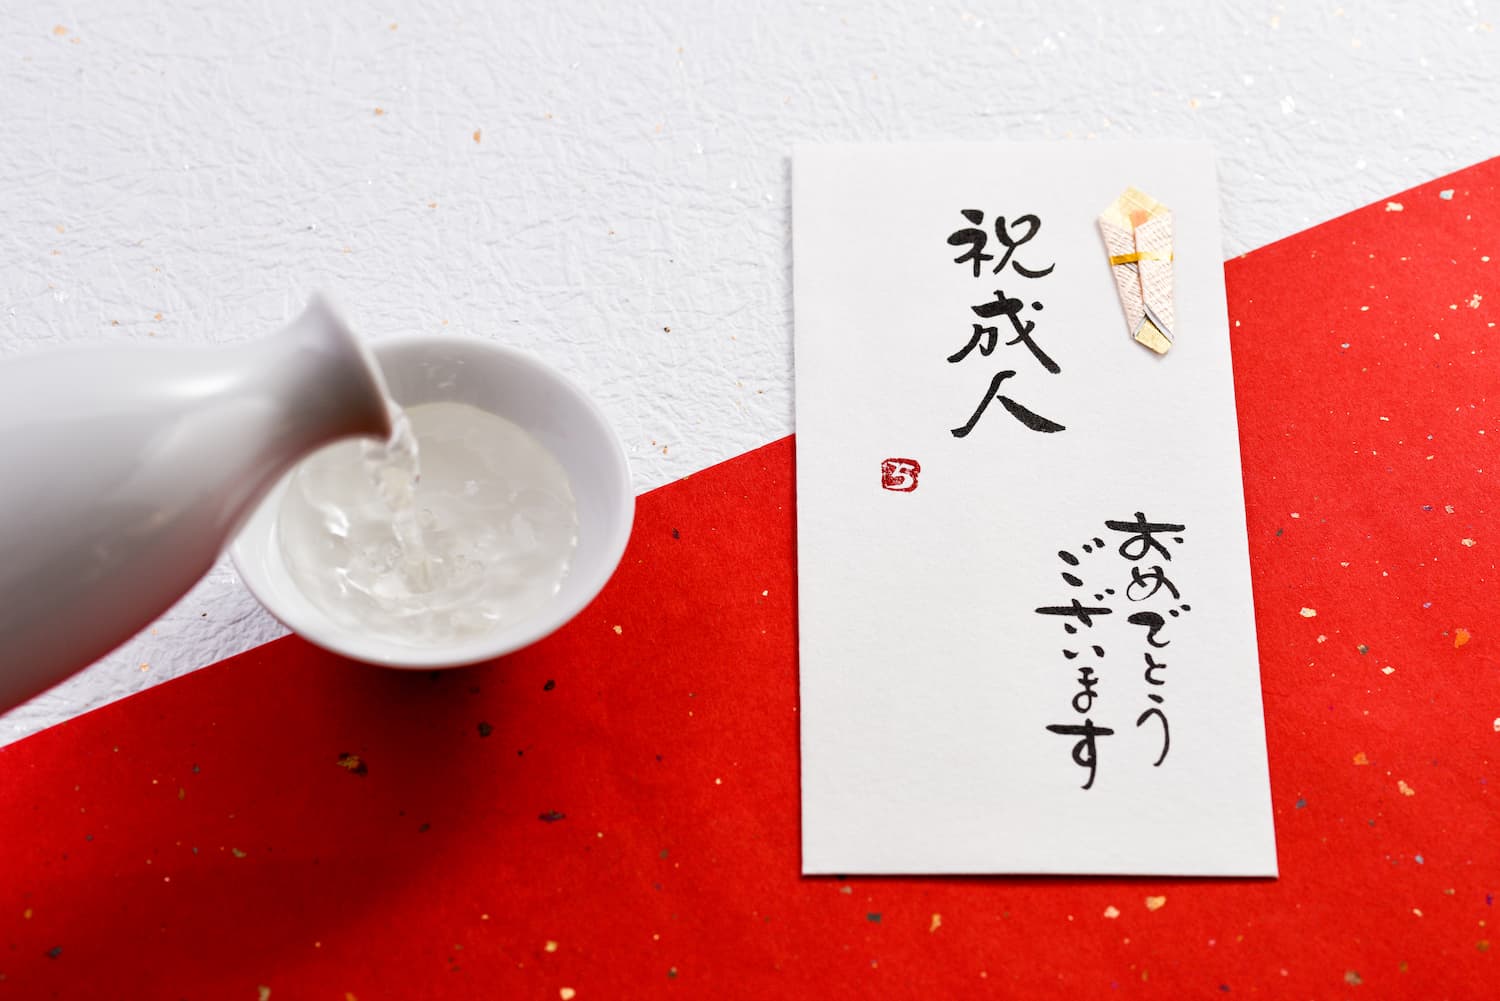 祝成人
おめでとう
ございます